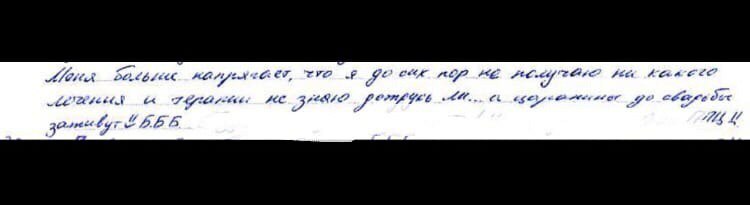 Меня больше напрягает, что я до сих пор не получаю ни какого
лечения и терапии не знаю дотрусь ли... а царапины до свадьбы
заживут!! Б.Б.Б. ПЦ!!